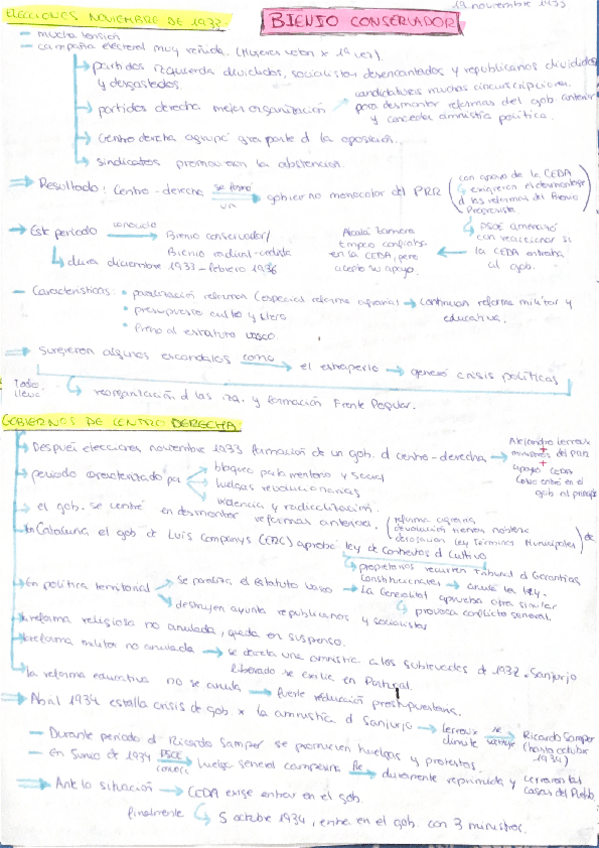 ELECCIONES NOVIEMBRE DE 1933.
BIENIO CONSERVADOR
19 noviembre 1933
- mucha tensión
- campaña electoral muy reñida. (Mujeres votan x 1ª vez)
partidos izquierda divididos, socialistas desencantados y republicanos divididos
y desgastados.
partidos derecha mejor organización
candidaturas muchas circunscripciones
para desmontar reformas del gob. anterior
y conceder amnistía política.
Centro derecha agrupó gran parte d la oposición.
sindicatos promovieron la abstención.
Resultado: Centro-derecha se formó un gobierno monocolor del PRR
con apoyo de la CEDA
exigieron el desmontaje
d las reformas del Bienio
Progresista.
PSOE amenazó
con reaccionar si
la CEDA entraba
al gob.
Alcalá Zamora
tampoco confiaba
en la CEDA, pero
aceptó su apoyo.
Este periodo conocido Bienio conservador/
Bienio radical-cedista
dura diciembre 1933 - febrero 1936
- Características: • paralización reformas (especial reforma agraria) → continúan reforma militar y
educativa.
• presupuesto culto y clero
• freno al estatuto vasco
Surgieron algunos escándalos como el estraperlo → generó crisis políticas
Todo lleva
reorganización d las izq. y formación Frente Popular.
GOBIERNOS DE CENTRO DERECHA:
Después elecciones noviembre 1933 formación de un gob. d centro-derecha →
Alejandro Lerroux
+
ministros del PRR
+
apoyo CEDA
no entró en el
gob al principio
periodo caracterizado por
bloqueo parlamentario y social
huelgas revolucionarias
violencia y radicalización.
el gob. se centró en desmontar reformas anteriores.
reforma agraria,
devolución tierras nobleza
derogación Ley Términos Municipales
En Cataluña el gob de Luis Companys (ERC) aprobó ley de Contratos d Cultivo
propietarios recurren Tribunal d Garantías
Constitucionales → anula la ley.
La Generalitat aprueba otra similar
provoca conflicto general.
En política territorial
se paraliza el Estatuto Vasco
destituyen ayunta republicanos y socialistas
la reforma religiosa no anulada, queda en suspenso.
la reforma militar no anulada → se decreta una amnistía a los sublevados de 1932. Sanjurjo
liberado se exilia en Portugal.
la reforma educativa no se anula → fuerte reducción presupuestaria.
Abril 1934 estalla crisis de gob. x la amnistía d Sanjurjo → Lerroux
dimite
Ricardo Samper
(hasta octubre
1934)
- Durante periodo d Ricardo Samper se promueven huelgas y protestas.
- En Junio de 1934 PSOE convoca huelga general campesina fue duramente reprimida y cerraron las
Casas del Pueblo
Ante la situación → CEDA exige entrar en el gob.
finalmente 5 octubre 1934, entra en el gob. con 3 ministros.